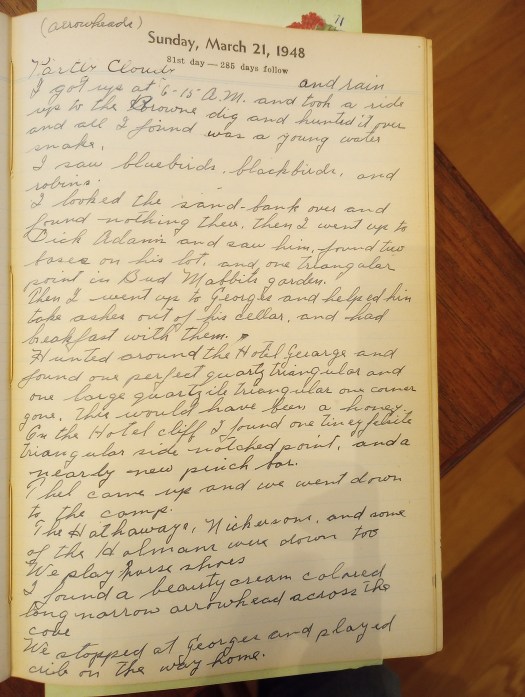 (arrowheads)
Sunday, March 21, 1948
81st day — 285 days follow
Partly Cloudy and rain
I got up at 6-15 A.M. and took a ride
up to the Browne dig and hunted it over
and all I found was a young water
snake.
I saw bluebirds, blackbirds, and
robins.
I looked the sand-bank over and
found nothing there, then I went up to
Dick Adams and saw him, found two
bases on his lot, and one triangular
point in Bud Mabbits garden.
Then I went up to Georges and helped him
take ashes out of his cellar, and had
breakfast with them.
Hunted around the Hotel Guarge and
found one perfect quartz triangular and
one large quartzite triangular one corner
gone. This would have been a honey.
On the Hotel cliff I found one tiney felsite
triangular side notched point, and a
nearly new pinch bar.
Thel came up and we went down
to the camp.
The Hathaways, Nickersons, and some
of the Holmans were down too
We play horse shoes
I found a beauty cream colored
long narrow arrowhead across the
cove
We stopped at Georges and played
crib on the way home.